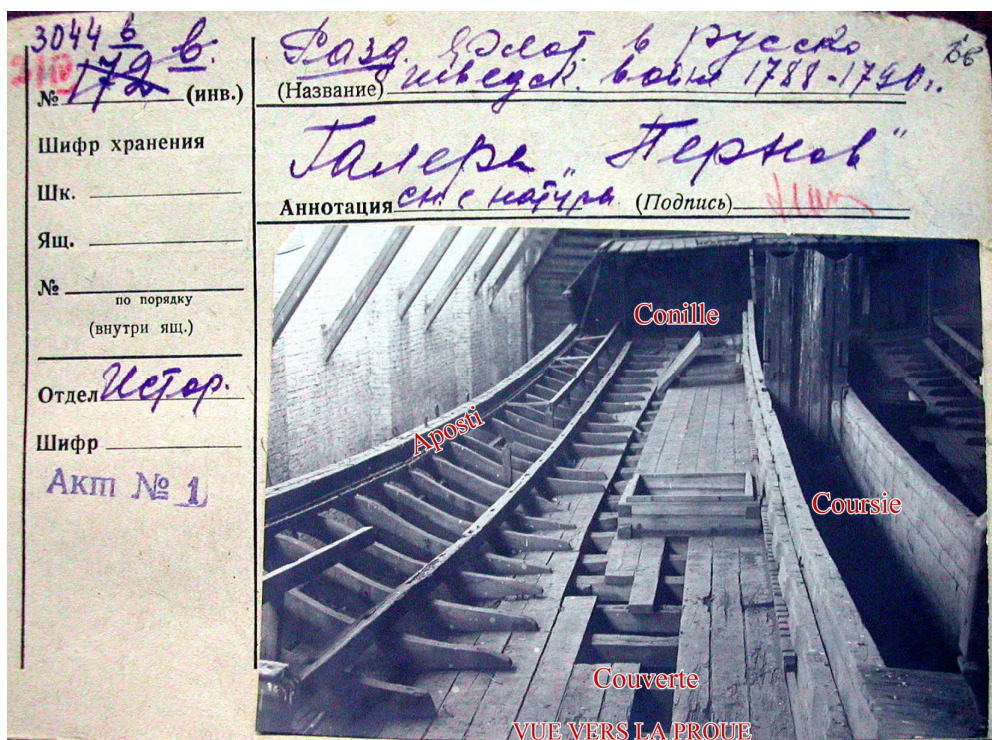 3044 в
172 в.
№ (инв.)
Шифр хранения
Шк.
Ящ.
№
по порядку
(внутри ящ.)
Отдел Истор.
Шифр
Акт № 1
Разд. Флот в русско
(Название) шведск. войн 1788-1790г.
Галера „Пернов"
Аннотация сн. с натуры (Подпись)
Conille
Aposti
Coursie
Couverte
VUE VERS LA PROUE